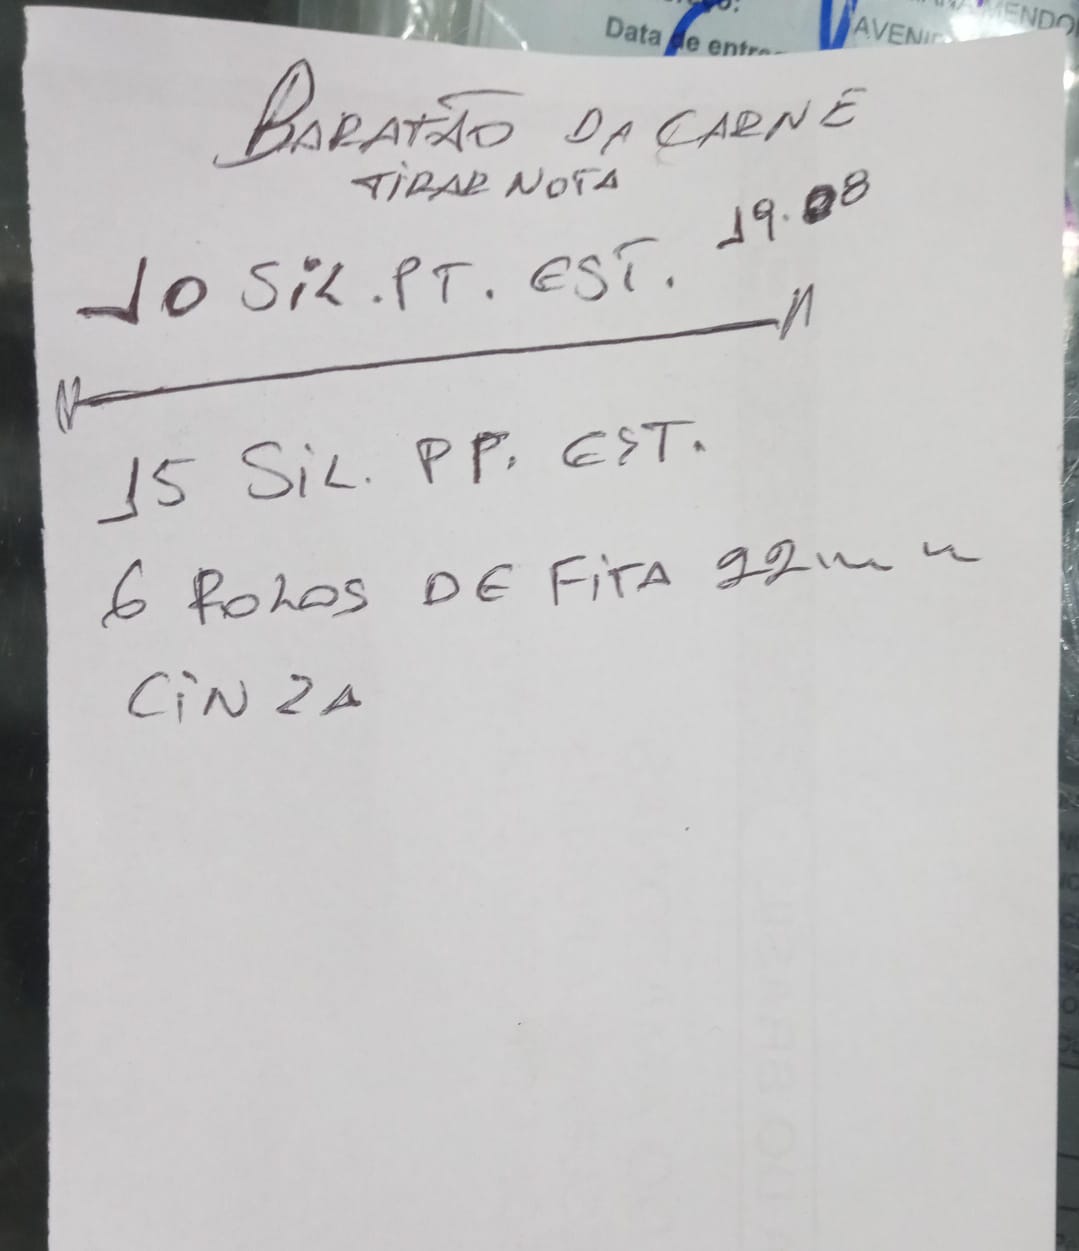 Data de entre
AVENI
MENDO
BARATÃO DA CARNE
TIRAR NOTA
19.08
10 SiL.PT. EST.
15 SiL. PP. EST.
6 ROLOS DE FiTA 22mm
CiNZA